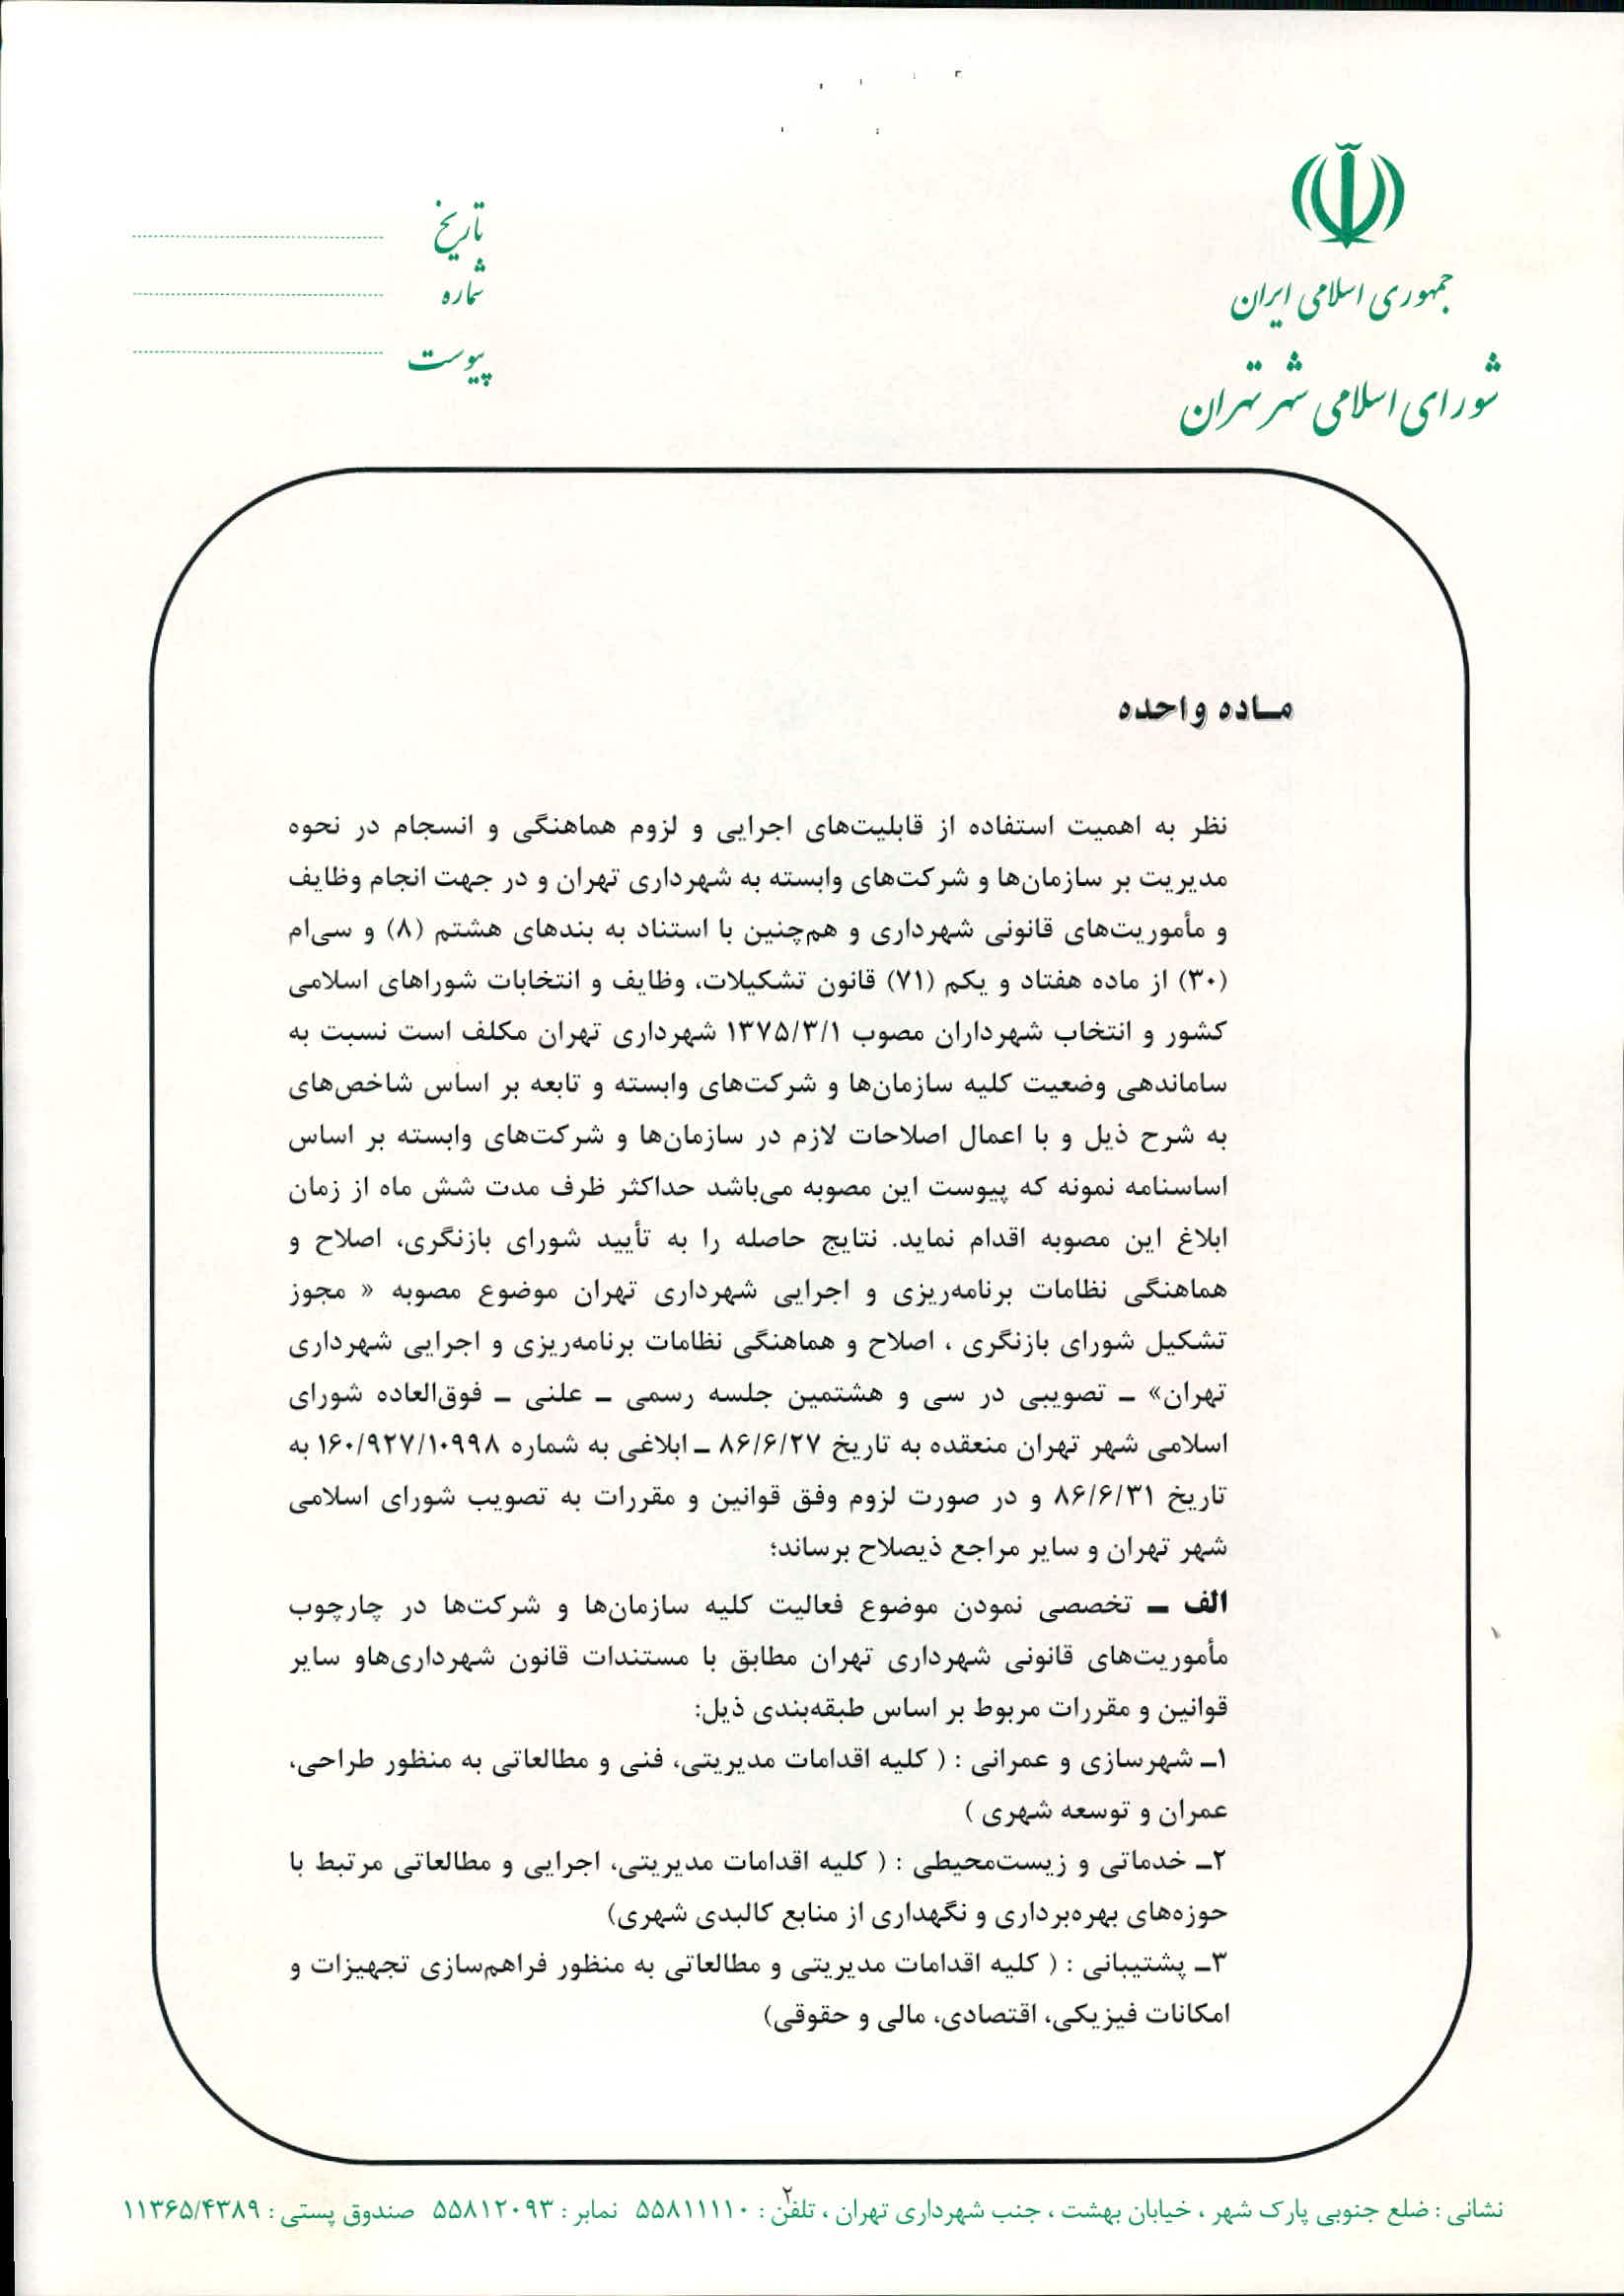 جمهوری اسلامی ایران
شورای اسلامی شهر تهران
تاریخ
شماره
پیوست
مـاده واحده
نظر به اهمیت استفاده از قابلیت‌های اجرایی و لزوم هماهنگی و انسجام در نحوه
مدیریت بر سازمان‌ها و شرکت‌های وابسته به شهرداری تهران و در جهت انجام وظایف
و مأموریت‌های قانونی شهرداری و هم‌چنین با استناد به بندهای هشتم (۸) و سی‌ام
(۳۰) از ماده هفتاد و یکم (۷۱) قانون تشکیلات، وظایف و انتخابات شوراهای اسلامی
کشور و انتخاب شهرداران مصوب ۱۳۷۵/۳/۱ شهرداری تهران مکلف است نسبت به
ساماندهی وضعیت کلیه سازمان‌ها و شرکت‌های وابسته و تابعه بر اساس شاخص‌های
به شرح ذیل و با اعمال اصلاحات لازم در سازمان‌ها و شرکت‌های وابسته بر اساس
اساسنامه نمونه که پیوست این مصوبه می‌باشد حداکثر ظرف مدت شش ماه از زمان
ابلاغ این مصوبه اقدام نماید. نتایج حاصله را به تأیید شورای بازنگری، اصلاح و
هماهنگی نظامات برنامه‌ریزی و اجرایی شهرداری تهران موضوع مصوبه « مجوز
تشکیل شورای بازنگری ، اصلاح و هماهنگی نظامات برنامه‌ریزی و اجرایی شهرداری
تهران» ـ تصویبی در سی و هشتمین جلسه رسمی ـ علنی ـ فوق‌العاده شورای
اسلامی شهر تهران منعقده به تاریخ ۸۶/۶/۲۷ ـ ابلاغی به شماره ۱۶۰/۹۲۷/۱۰۹۹۸ به
تاریخ ۸۶/۶/۳۱ و در صورت لزوم وفق قوانین و مقررات به تصویب شورای اسلامی
شهر تهران و سایر مراجع ذیصلاح برساند؛
الف ـ تخصصی نمودن موضوع فعالیت کلیه سازمان‌ها و شرکت‌ها در چارچوب
مأموریت‌های قانونی شهرداری تهران مطابق با مستندات قانون شهرداری‌هاو سایر
قوانین و مقررات مربوط بر اساس طبقه‌بندی ذیل:
۱ـ شهرسازی و عمرانی : ( کلیه اقدامات مدیریتی، فنی و مطالعاتی به منظور طراحی،
عمران و توسعه شهری )
۲ـ خدماتی و زیست‌محیطی : ( کلیه اقدامات مدیریتی، اجرایی و مطالعاتی مرتبط با
حوزه‌های بهره‌برداری و نگهداری از منابع کالبدی شهری)
۳ـ پشتیبانی : ( کلیه اقدامات مدیریتی و مطالعاتی به منظور فراهم‌سازی تجهیزات و
امکانات فیزیکی، اقتصادی، مالی و حقوقی)
۲
نشانی : ضلع جنوبی پارک شهر ، خیابان بهشت ، جنب شهرداری تهران ، تلفن : ۵۵۸۱۱۱۱۰ نمابر : ۵۵۸۱۲۰۹۳ صندوق پستی : ۱۱۳۶۵/۴۳۸۹